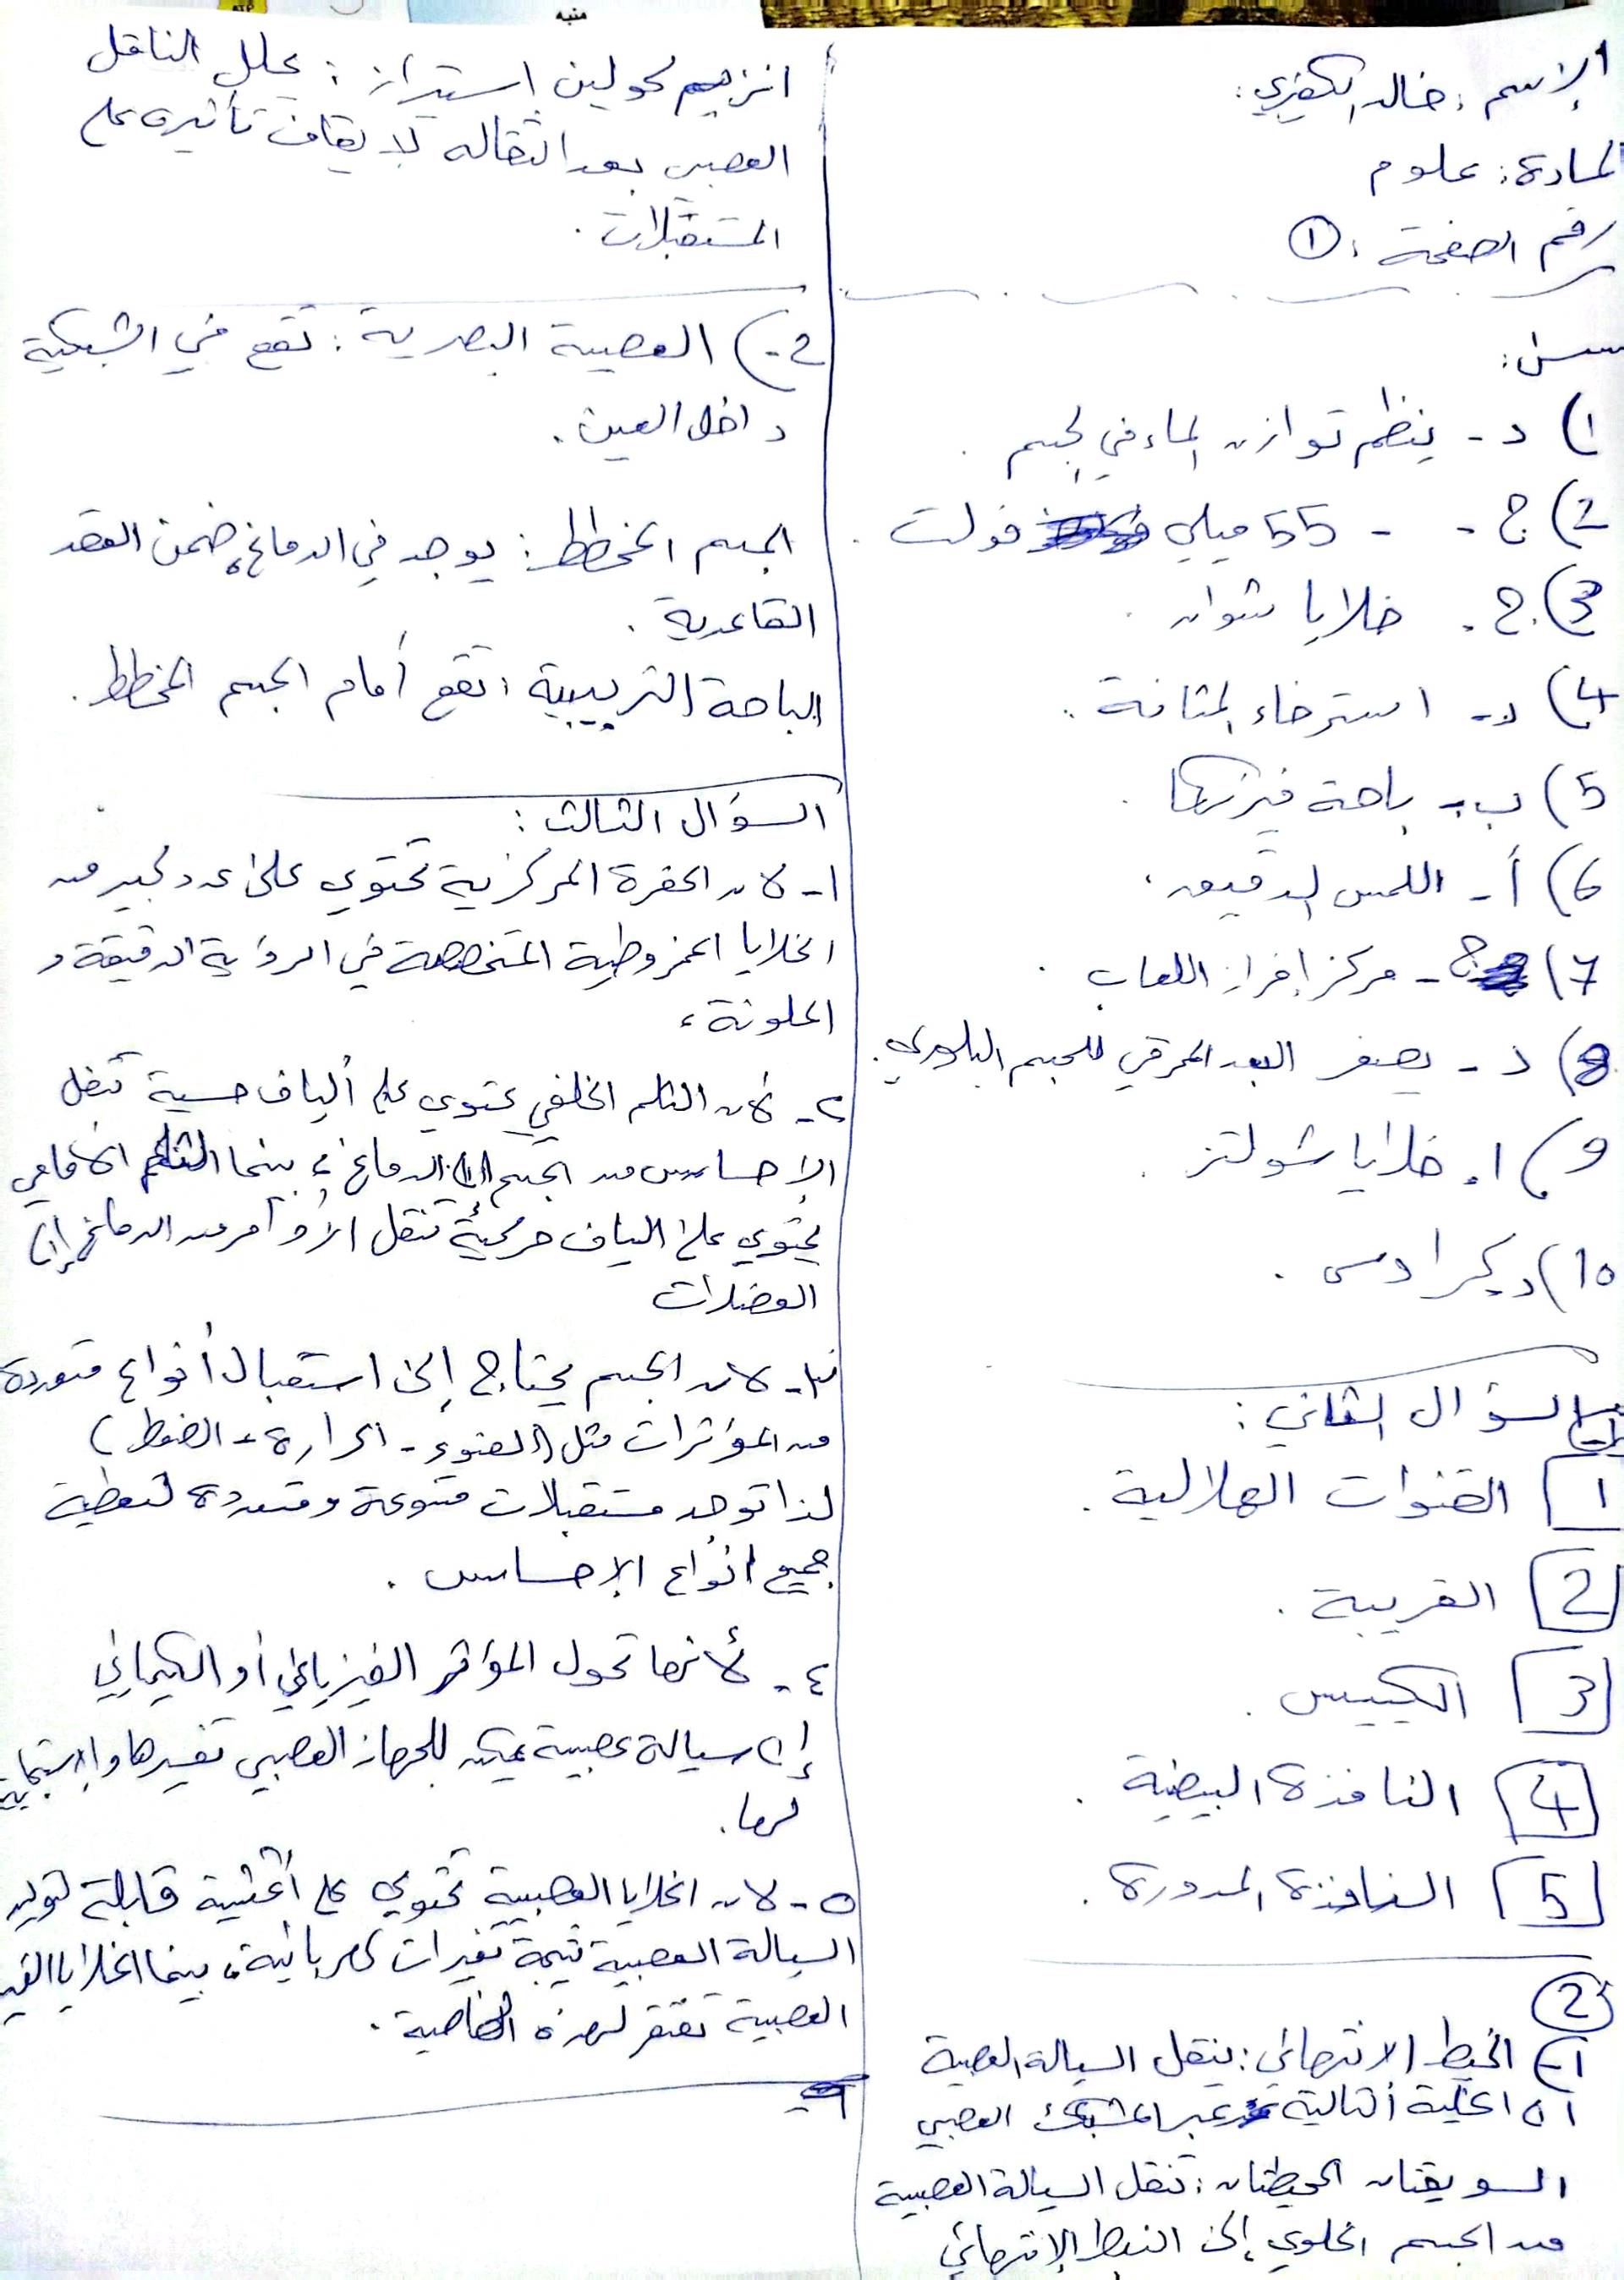 منبه
ATP
الإسم: خالد الكفري:
المادة: علوم
رقم الصفحة: ①
1) د- ينظم توازن الماء في الجسم.
2) ج- - 55 ميلي فولت.
3) ج. خلايا شوان.
4) د- استرخاء المثانة.
5) ب- باحة فيرنكا.
6) أ- اللمس الدقيق.
7) ج- مركز إفراز اللعاب.
8) د- يصغر البعد المحرقي للجسم البلوري.
9) ا. خلايا شولتز.
10) د
السؤال الثاني:
1 القنوات الهلالية.
2 القريبة.
3 الكييس.
4 النافذة البيضية.
5 النافذة المدورة.
2
1) الخيط الانتهائي: ينقل السيالة العصبية
الى الخلية التالية عبر المشبك العصبي
السويقتان المخيتان: تنقل السيالة العصبية
من الجسم الخلوي إلى النبط الإنتهائي
انزيم كولين استيراز: يحلل الناقل
العصبي بعد انتقاله لإيقاف تأثيره على
المستقبلات.
2-) العصبية البصرية: تقع في الشبكية
داخل العين.
الجسم المخطط: يوجد في الدماغ، ضمن العقد
القاعدية.
الباحة التربيبية: تقع أمام الجسم المخطط.
السؤال الثالث:
١- لان الحفرة المركزية تحتوي على عدد كبير من
الخلايا المخروطية المتخصصة في الرؤية الدقيقة و
الملونة،
٢- لأن الثلم الخلفي يحتوي على ألياف حسية تنقل
الإحساس من الجسم إلى الدماغ، بينما الثلم الأمامي
يحتوي على الياف حركية تنقل الأوامر من الدماغ إلى
العضلات
٣- لان الجسم يحتاج إلى استقبال أنواع متعددة
من المؤثرات مثل (الضوء - الحرارة - الضغط)
لذا توجد مستقبلات متنوعة ومتعددة لتغطية
جميع انواع الإحساس.
٤- لأنها تحول المؤثر الفيزيائي أو الكيميائي
إلى سيالة عصبية يمكن للجهاز العصبي تفسيرها والاستجابة
لها.
٥- لان الخلايا العصبية تحتوي على أغشية قابلة لتوليد
السيالة العصبية نتيجة تغيرات كهربائية، بينما الخلايا الغير
العصبية تفتقر لهذه الخاصية.